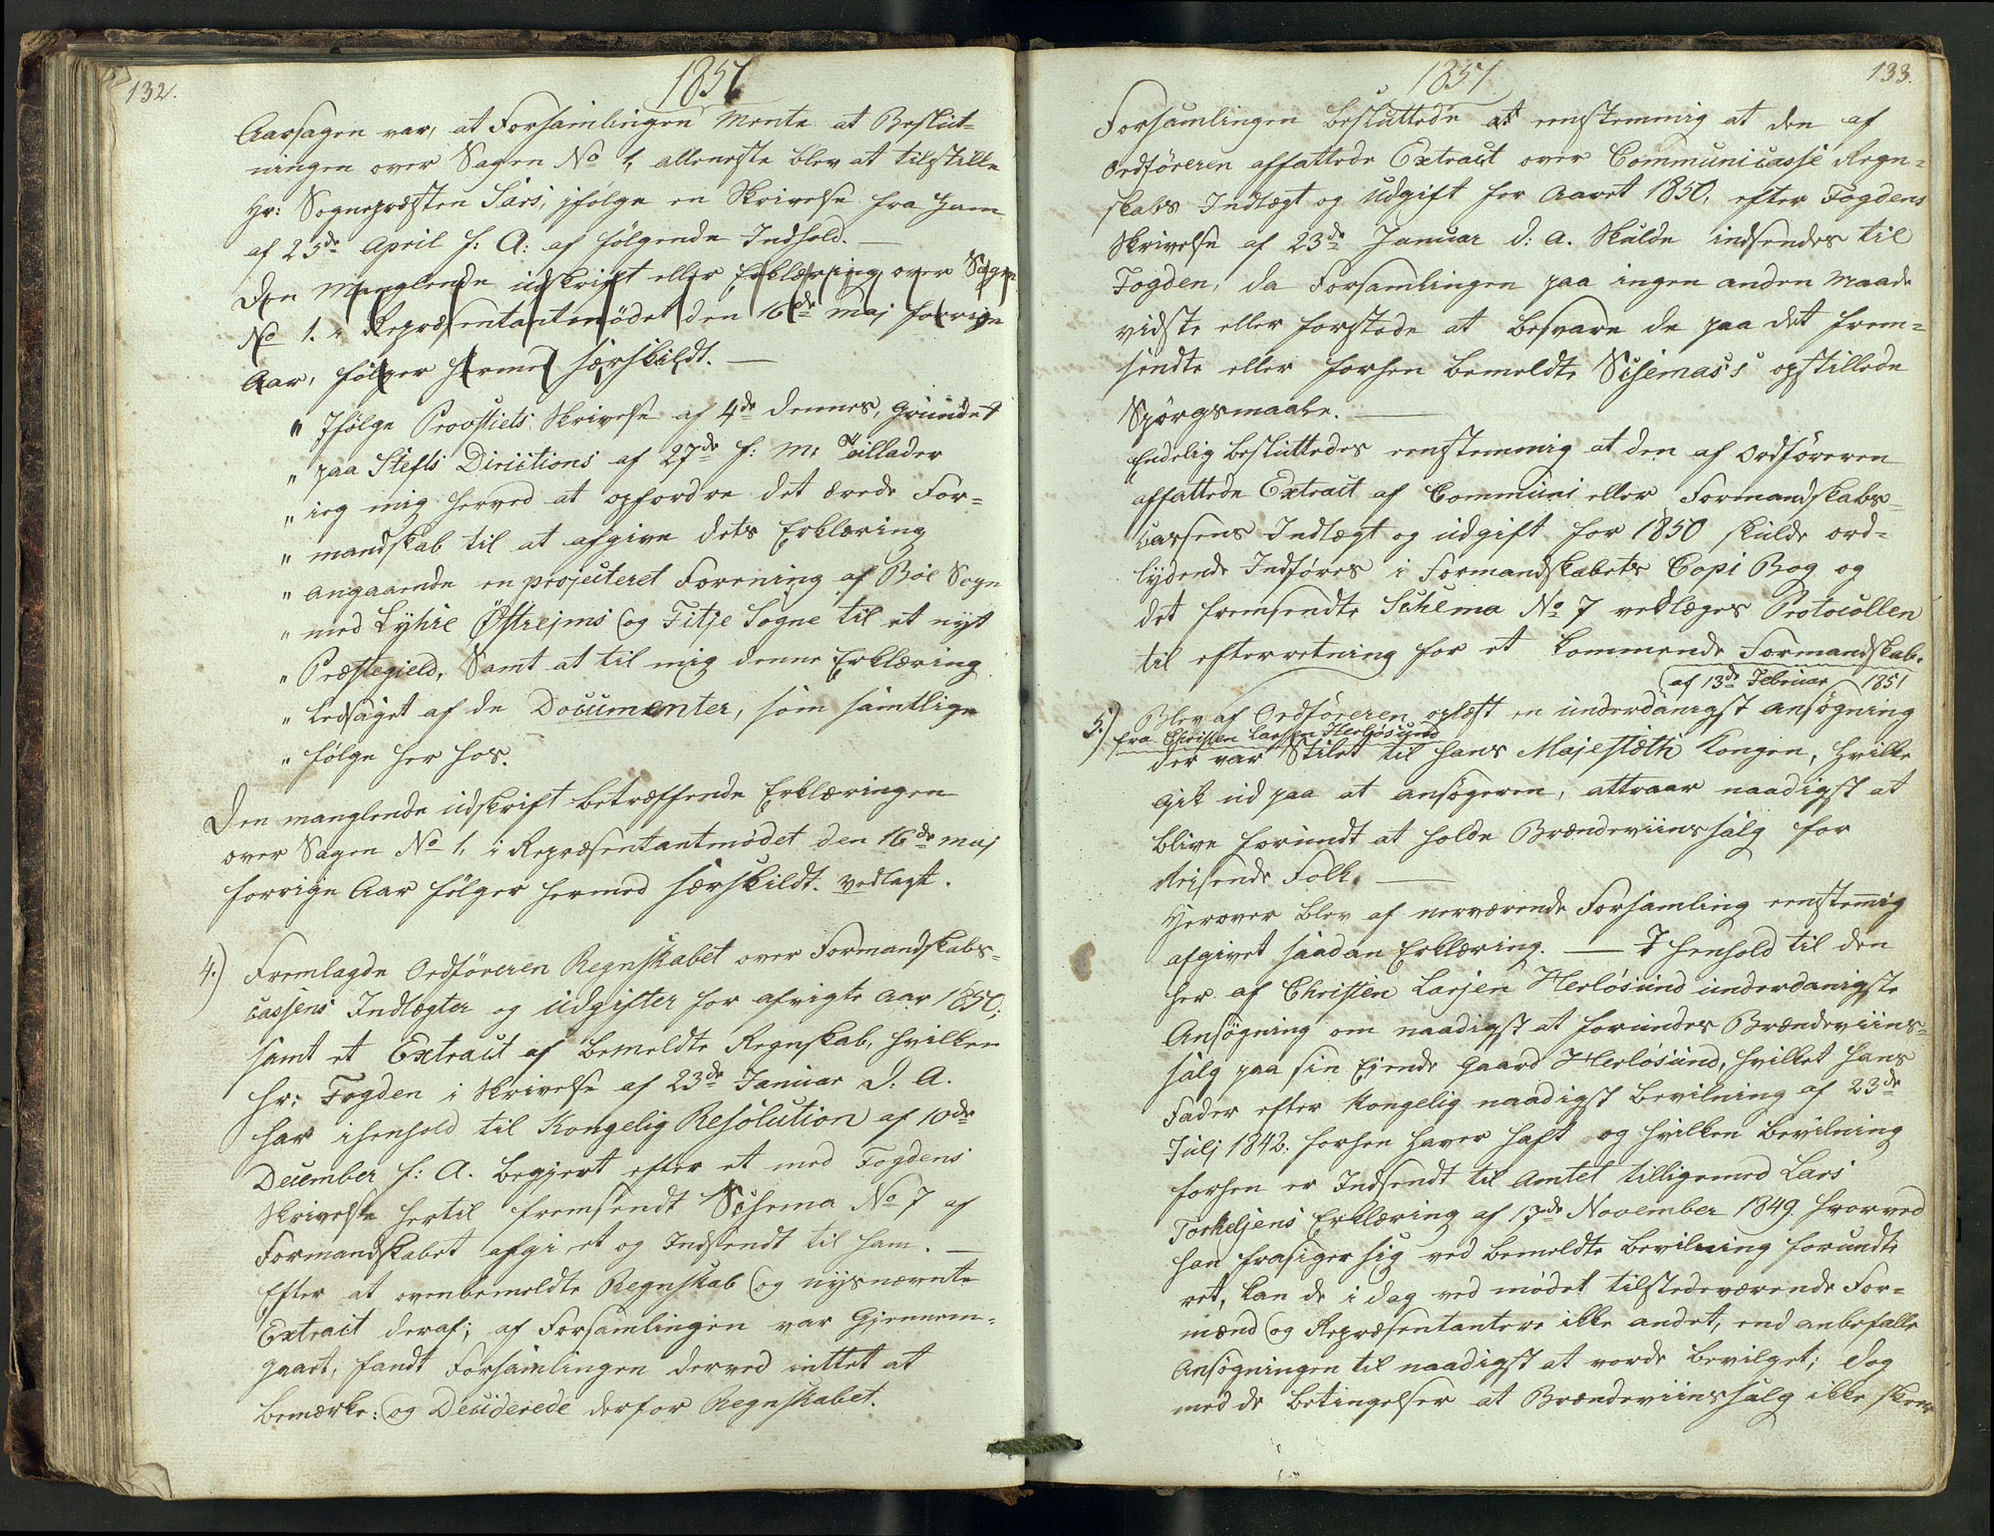 132.
1851
Aarsagen var, at Forsamlingen Mente at Beslut-
ningen over Sagen No 1, alleneste blev at tilstille
Hr: Sognepræsten Sars, ifølge en Skrivelse fra Ham
af 23de April f: A: af følgende Indhold. —
Den Manglende udskrift eller Erklæring over Sagen
No 1. i Repræsentantmødet den 16de Maj forrige
Aar, følger hermed særskildt. —
" Ifølge Provstiets Skrivelse af 4de dennes, Grundet
" paa Stifts Directions af 27de f: M: Tillader
" ieg mig herved at opfordre det ærede For-
" mandskab til at afgive dets Erklæring
" angaaende en projecteret Forening af Bøe Sogn
" med Lyhre Østrejms og Fitje Sogne til et nyt
" Præstegield, Samt at til mig denne Erklæring
" Ledsaget af de Documenter, som samtlige
" følge her hos.
Den manglende udskrift betræffende Erklæringen
over Sagen No 1, i Repræsentantmødet den 16de Maj
forrige Aar følger hermed særskildt vedlagt.
4.) Fremlagde Ordføreren Regnskabet over Formandskabs-
cassens Indtægter og Udgifter for afvigte Aar 1850;
samt et Extract af bemeldte Regnskab, hvilken
Hr: Fogden i Skrivelse af 23de Januar d. A.
har ihenhold til Kongelig Resolution af 10de
December f: A. begjert efter et med Fogdens
Skrivelse hertil fremsendt Schema No 7 af
Formandskabet afgivet og Indsendt til ham. —
Efter at ovenbemeldte Regnskab og nysnævnte
Extract deraf; af Forsamlingen var Gjennem-
gaaet, fandt Forsamlingen derved inttet at
bemærke: og Deciderede derfor Regnskabet.
1851.
133.
Forsamlingen besluttede at eenstemmig at den af
Ordføreren affattede Extract over Communicasse Regn-
skabs Indtægt og Udgift for Aaret 1850, efter Fogdens
Skrivelse af 23de Januar d: A. Skulde indsendes til
Fogden, da Forsamlingen paa ingen anden Maade
vidste eller forstode at besvare de paa det frem-
sendte eller forhen bemeldte Schemas's opstillede
Spørgsmaale. —
Endelig besluttedes eenstemmig at den af Ordføreren
affattede Extract af Communi eller Formandskabs-
cassens Indtægt og udgift for 1850 skulde ord-
lydende Indføres i Formandskabets Copi Bog og
det fremsendte Schema No 7 vedlæges Protocollen
til efterretning for et kommende Formandskab.
af 13de Februar 1851
5.) Blev af Ordføreren oplæst en underdanigst ansøgning
fra Christen Larsen Herløsund
der var Stilet til hans Majestæth Kongen, hvilke
gik ud paa at ansøgeren, attraar naadigst at
blive forundt at holde Brændeviinssalg for
Reisende Folk. —
Herover blev af nerværende Forsamling eenstemmig
afgivet saadan Erklæring. — I henhold til den
her af Christen Larsen Herløsund underdanigste
Ansøgning om naadigst at forundes Brændeviins-
salg paa sin Ejende Gaard Herløsund, hvilket hans
Fader efter Kongelig naadigst Bevilning af 23de
Julj 1842. forhen haver haft og hvilken bevilning
forhen er Indsendt til Amtet tilligemed Lars
Torkelsens Erklæring af 17de November 1849 hvorved
han frasiger sig ved bemeldte bevilning forundte
ret, kan de i dag ved mødet tilstedeværende For-
mænd og Repræsentantere ikke andet, end anbefalle
Ansøgningen til naadigst at vorde bevilget; dog
med de betingelser at Brændeviinssalg ikke skeer